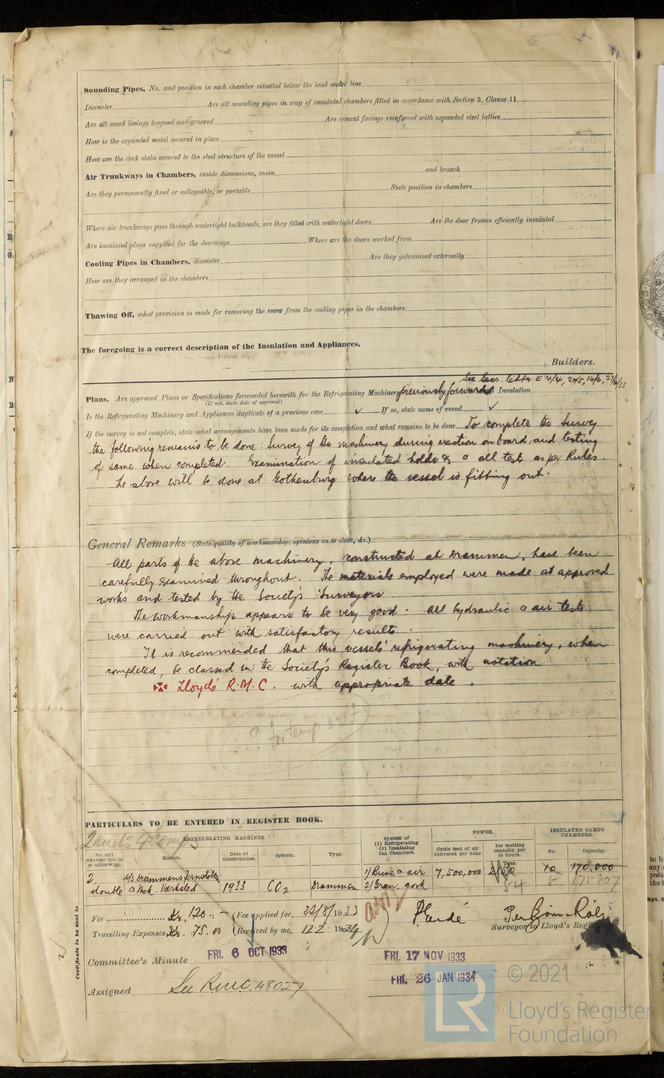 Sounding Pipes, No. and position in each chamber situated below the load water line
Diameter Are all sounding pipes in way of insulated chambers fitted in accordance with Section 3, Clause 11
Are all wood linings tongued and grooved Are cement facings reinforced with expanded steel lattice
How is the expanded metal secured in place
How are the cork slabs secured to the steel structure of the vessel
Air Trunkways in Chambers, inside dimensions, main and branch
Are they permanently fixed or collapsible, or portable State position in chambers
Where air trunkways pass through watertight bulkheads, are they fitted with watertight doors Are the door frames efficiently insulated
Are insulated plugs supplied for the doorways Where are the doors worked from
Cooling Pipes in Chambers, diameter Are they galvanised externally
How are they arranged in the chambers
Thawing Off, what provision is made for removing the snow from the cooling pipes in the chambers
The foregoing is a correct description of the Insulation and Appliances.
Builders.
Plans. Are approved Plans or Specifications forwarded herewith for the Refrigerating Machinery previously forwarded Insulation
(If not, state date of approval)
Is the Refrigerating Machinery and Appliances duplicate of a previous case If so, state name of vessel
If the survey is not complete, state what arrangements have been made for its completion and what remains to be done To complete the Survey
the following remains to be done: Survey of the machinery during erection on board, and testing
of same when completed. Examination of insulated holds & all tests as per Rules.
The above will be done at Gothenburg where the vessel is fitting out.
General Remarks (State quality of workmanship, opinions as to class, &c.)
All parts of the above machinery, constructed at Drammen, have been
carefully examined throughout. The materials employed were made at approved
works and tested by the Society's Surveyors
The workmanship appears to be very good. All hydraulic & air tests
were carried out with satisfactory results.
It is recommended that this vessels' refrigerating machinery, when
completed, be classed in the Society's Register Book, with notation
✠ Lloyd's R.M.C. with appropriate date.
PARTICULARS TO BE ENTERED IN REGISTER BOOK.
REFRIGERATING MACHINES.
System of
(1) Refrigerating
(2) Insulating
the Chambers.
POWER.
INSULATED CARGO CHAMBERS.
Makers. Date of Construction. System. Type. Cubic feet of air delivered per hour. Ice melting capacity per 24 hours. No. Capacity.
2 A/S Drammens Jernstøberi 1) Brine & air 7,500,000 10 170,000
double & Mek. Værksted 1933 CO2 Drammen 2) Gran. cork
Fee Kr. 120:- Fee applied for, 22/8/1933
Travelling Expenses Kr. 75.00 Received by me, 12.2. 1934
Surveyor to Lloyd's Register
Committee's Minute FRI. 6 OCT 1933 FRI. 17 NOV 1933
FRI. 26 JAN 1934
Assigned
Certificate to be sent to
© 2021
LR
Lloyd's Register
Foundation